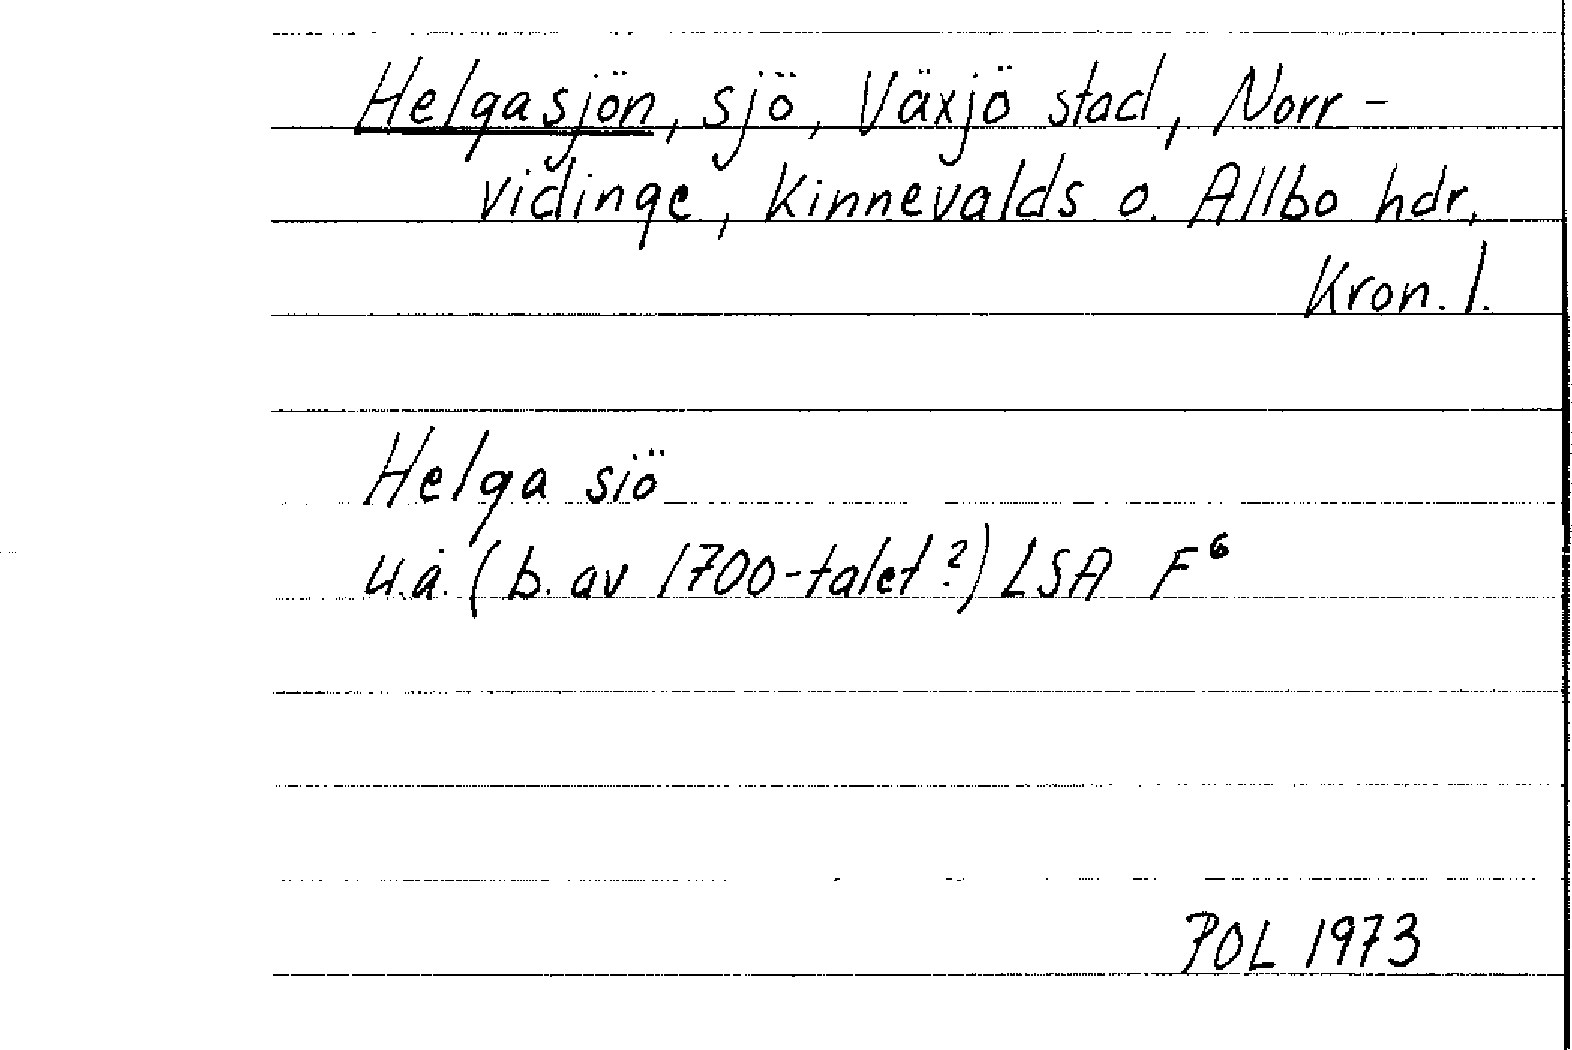 Helgasjön, sjö, Växjö stad, Norr-
vidinge, Kinnevalds o. Allbo hdr,
Kron. l.
Helga siö
u.å. (b. av 1700-talet?) LSA F⁶
POL 1973